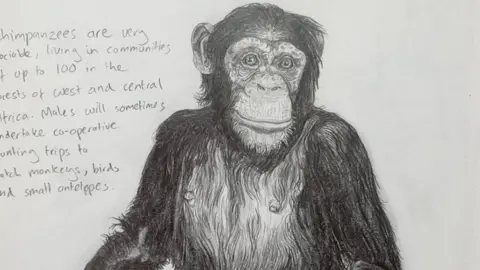 himpanzees are very
ociable, living in communities
f up to 100 in the
rests of west and central
frica. Males will sometimes
ndertake co-operative
unting trips to
atch monkeys, birds
nd small antelopes.